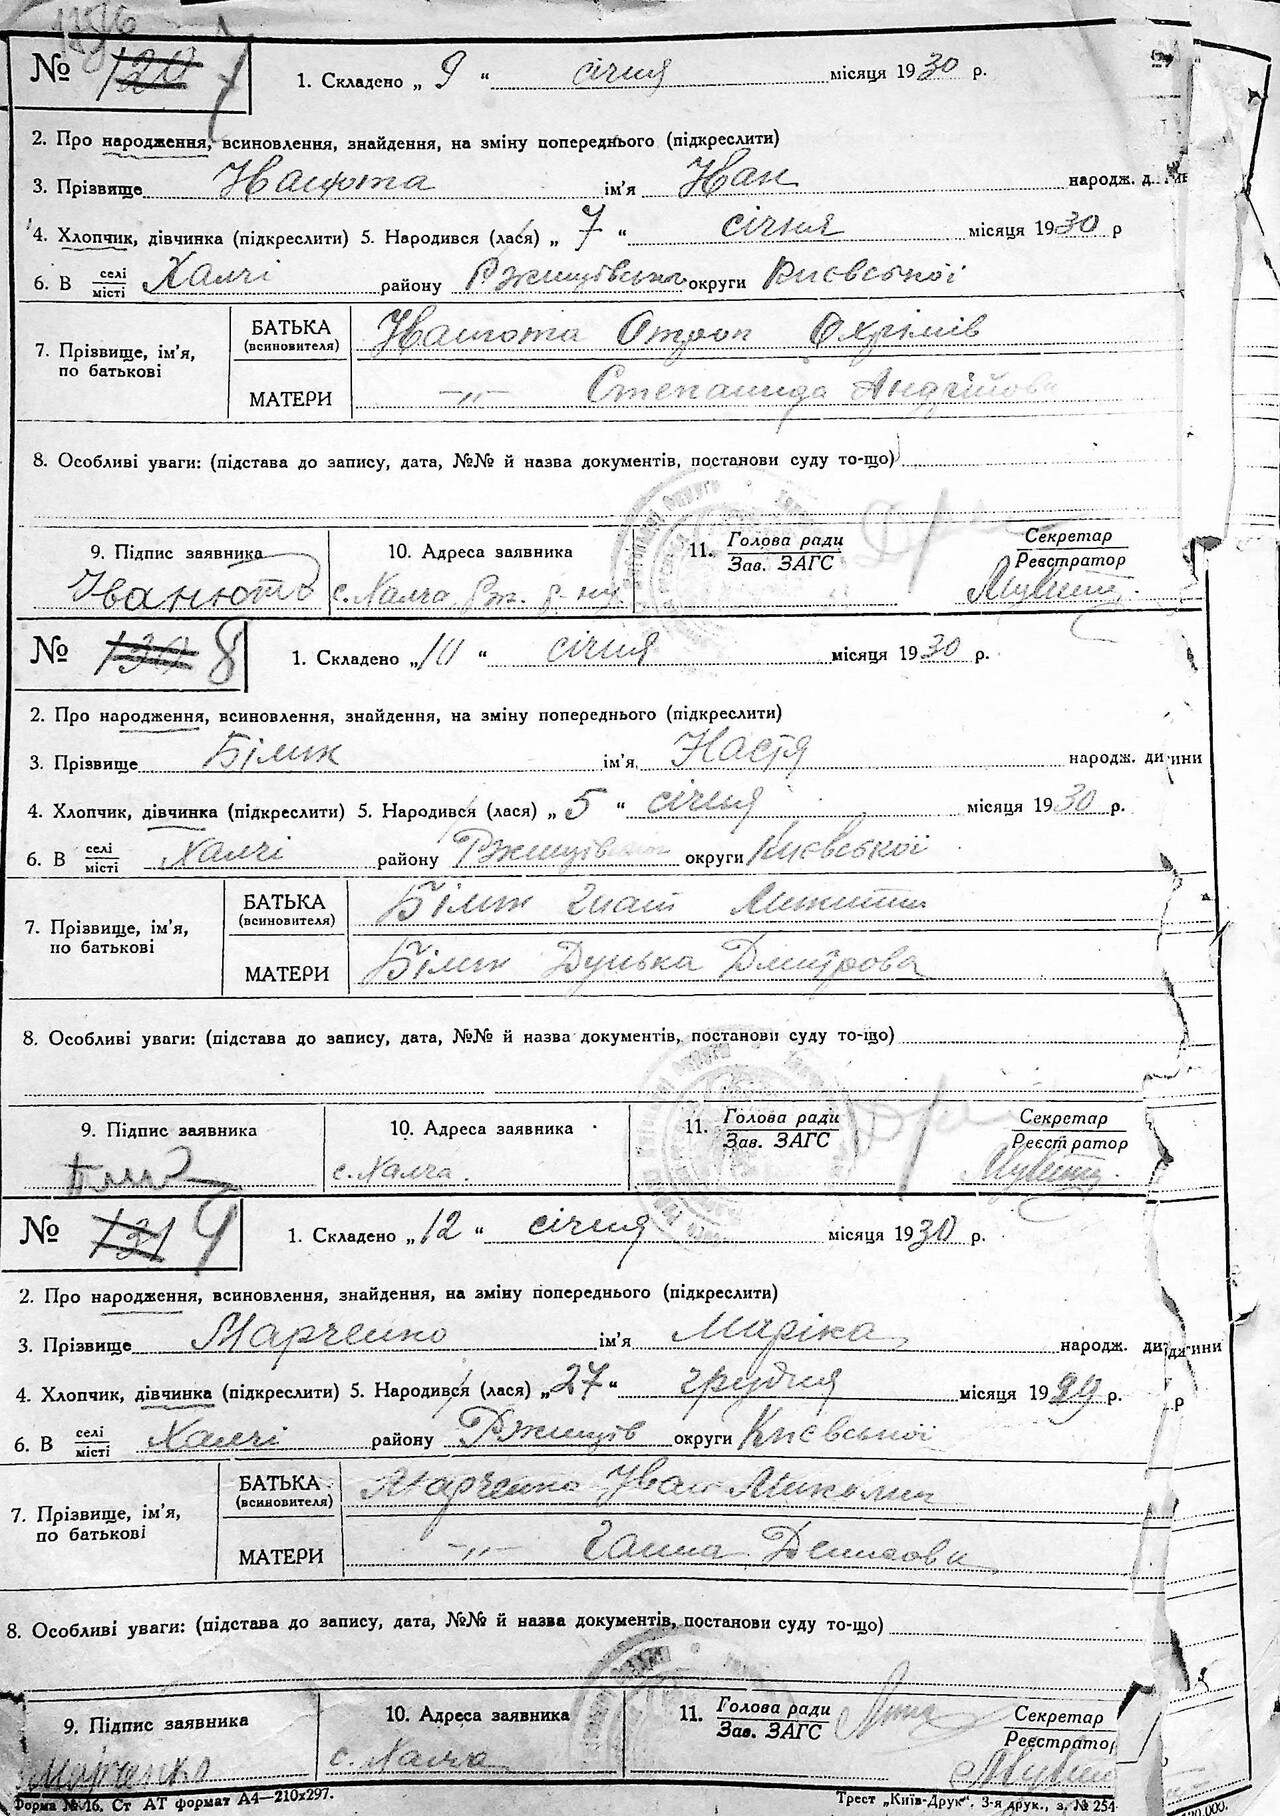 № 129 7 1. Складено „ 9 “ січня місяця 1930 р.
2. Про народження, всиновлення, знайдення, на зміну попереднього (підкреслити)
3. Прізвище ім'я Йван народж. д
4. Хлопчик, дівчинка (підкреслити) 5. Народився (лася) „ 7 “ січня місяця 1930 р
6. В селі Халчі району Ржищівськ округи Києвської
місті
БАТЬКА Охрімів
7. Прізвище, ім'я, (всиновителя)
по батькові
МАТЕРИ —„— Степанида Андрійова
8. Особливі уваги: (підстава до запису, дата, №№ й назва документів, постанови суду то-що)
9. Підпис заявника 10. Адреса заявника 11. Голова ради Секретар
Зав. ЗАГС Реєстратор
с. Халча, рж. р-ну
№ 130 8 1. Складено „ 10 “ січня місяця 1930 р.
2. Про народження, всиновлення, знайдення, на зміну попереднього (підкреслити)
3. Прізвище Білик ім'я Настя народж. дитини
4. Хлопчик, дівчинка (підкреслити) 5. Народився (лася) „ 5 “ січня місяця 1930 р.
6. В селі Халчі району Ржищівськ округи Києвської
місті
БАТЬКА Білик Гнат Микитин
7. Прізвище, ім'я, (всиновителя)
по батькові
МАТЕРИ Білик Дунька Дмитрова
8. Особливі уваги: (підстава до запису, дата, №№ й назва документів, постанови суду то-що)
9. Підпис заявника 10. Адреса заявника 11. Голова ради Секретар
Зав. ЗАГС Реєстратор
с. Халча.
№ 131 9 1. Складено „ 12 “ січня місяця 1930 р.
2. Про народження, всиновлення, знайдення, на зміну попереднього (підкреслити)
3. Прізвище Марченко ім'я Маріка народж. дитини
4. Хлопчик, дівчинка (підкреслити) 5. Народився (лася) „ 27 “ грудня місяця 1929 р.
6. В селі Халчі району Ржищів округи Києвської
місті
БАТЬКА Марченко Йван Миколин
7. Прізвище, ім'я, (всиновителя)
по батькові
МАТЕРИ —„— Ганна Денисова
8. Особливі уваги: (підстава до запису, дата, №№ й назва документів, постанови суду то-що)
9. Підпис заявника 10. Адреса заявника 11. Голова ради Секретар
Зав. ЗАГС Реєстратор
Марченко с. Халча
Форма № 16. Ст АТ формат А4—210х297. Трест „Київ-Друк“, 3-я друк., з. № 254